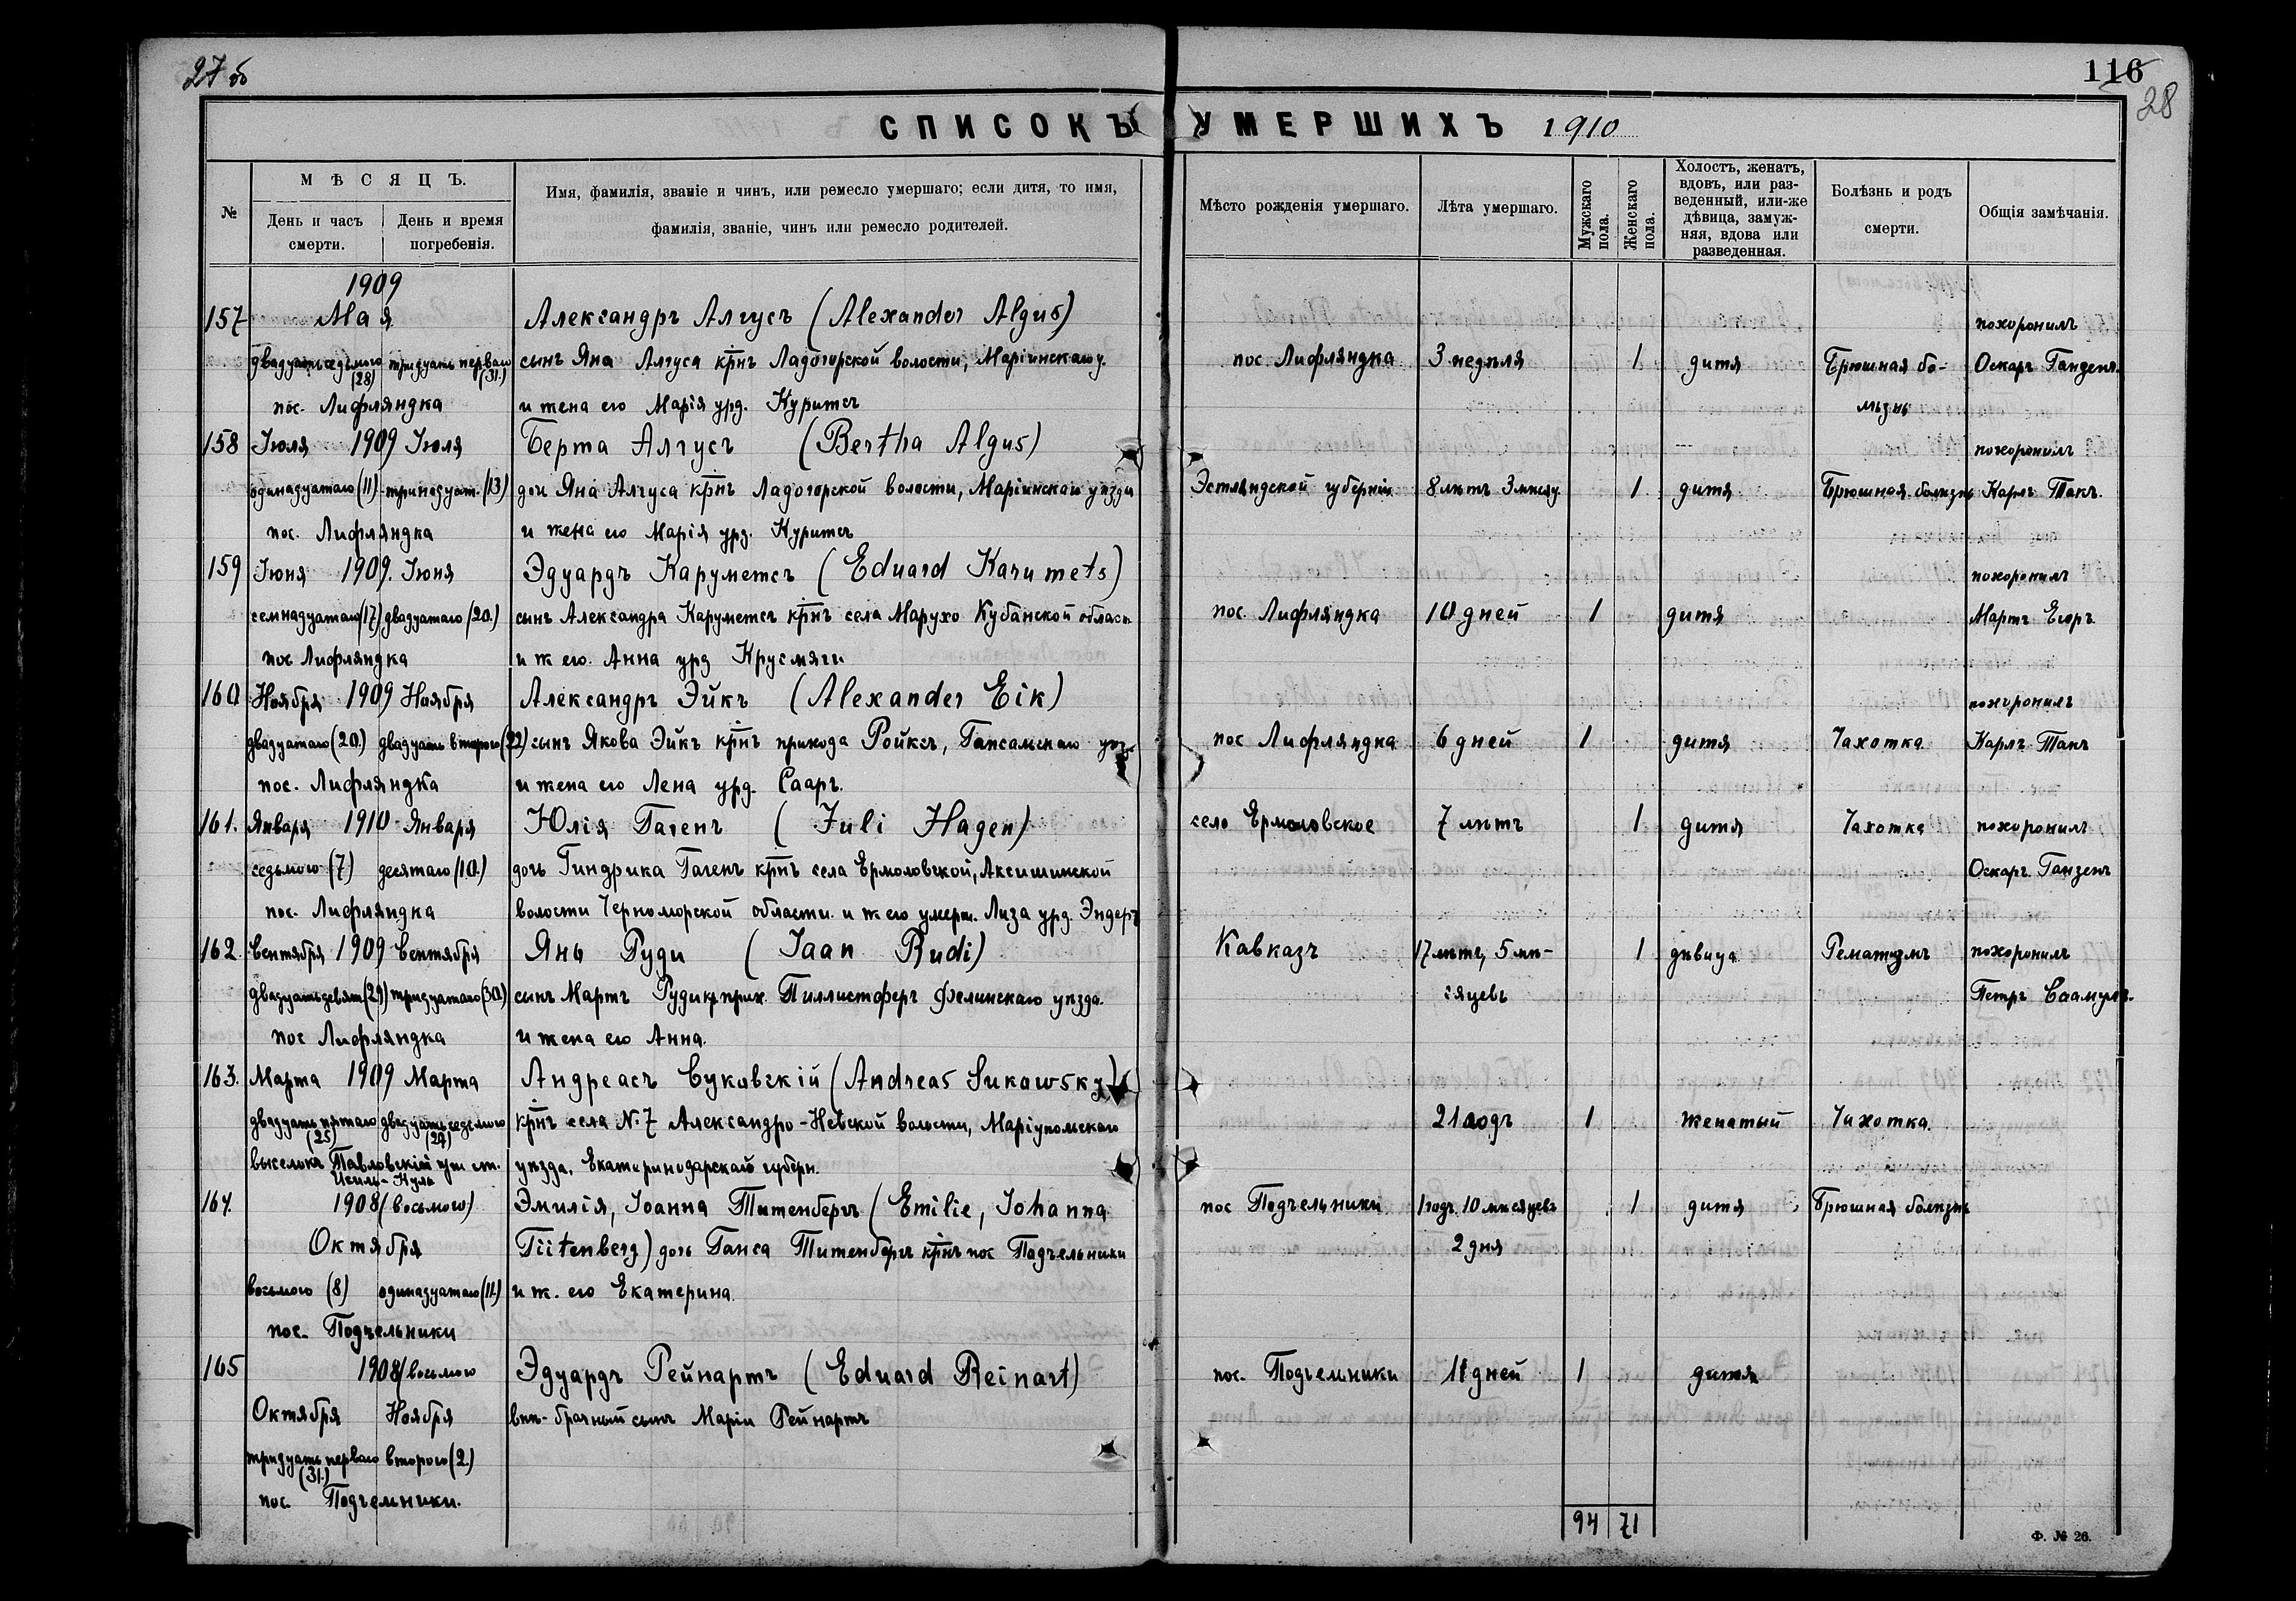 27 об
116
28
СПИСОКЪ УМЕРШИХЪ 1910
№
МѢСЯЦЪ.
День и часъ смерти.
День и время погребенія.
Имя, фамилія, званіе и чинъ, или ремесло умершаго; если дитя, то имя,
фамилія, званіе, чинъ или ремесло родителей.
Мѣсто рожденія умершаго.
Лѣта умершаго.
Мужскаго пола.
Женскаго пола.
Холостъ, женатъ,
вдовъ, или раз-
веденный, или-же
дѣвица, замуж-
няя, вдова или
разведенная.
Болѣзнь и родъ
смерти.
Общія замѣчанія.
1909
157 Мая Александръ Алгусъ (Alexander Algus) похоронилъ
двадцать седьмого (28) тридцать перваго (31.) сынъ Яна Алгуса крнъ Ладогорской волости, Маріинскаго у. пос. Лифляндка 3 недѣля 1 дитя Брюшная бо- Оскаръ Ганзенъ.
пос. Лифляндка и жена его Марія урд. Куритсъ лѣзнь
158 Іюля 1909 Іюля Берта Алгусъ (Bertha Algus) похоронилъ
одинадцатаго (11) тринадцат. (13) доч Яна Алгуса крнъ Ладогорской волости, Маріинскаго уѣзда Эстляндской губерніи 8 лѣтъ 3 мѣсяц. 1 дитя Брюшная болѣзнь Карлъ Такъ.
пос. Лифляндка и жена его Марія урд. Куритсъ
159 Іюня 1909. Іюня Эдуардъ Каруметсъ (Eduard Karumets) похоронилъ
семнадцатаго (17) двадцатаго (20.) сынъ Александра Каруметсъ крнъ села Марухо Кубанской област. пос. Лифляндка 10 дней 1 дитя Мартъ Егоръ
пос Лифляндка и ж его. Анна урд Крусмяги
160 Ноября 1909 Ноября Александръ Эйкъ (Alexander Eik) похоронилъ
двадцатаго (20.) двадцать второго (22) сынъ Якова Эйкъ крнъ прихода Ройксъ, Гапсальскаго уѣз. пос Лифляндка 6 дней 1 дитя Чахотка Карлъ Такъ
пос. Лифляндка и жена его Лена урд. Сааръ.
161. Января 1910 Января Юлія Гагенъ (Juli Hagen) село Ермоловское 7 лѣтъ 1 дитя Чахотка похоронилъ
седьмого (7) десятаго (10.) дочь Гиндрика Гагенъ крнъ села Ермоловской, Аксишинской Оскаръ Ганзенъ
пос. Лифляндка волости Черноморской области. и ж его умерш. Лиза урд. Эндеръ
162. Сентября 1909 Сентября Янъ Руди (Jaan Rudi) Кавказъ 17 лѣтъ, 5 мѣ- 1 дѣвица Рематизмъ похоронилъ
двадцатьдевят (29) тридцатаго (30.) сынъ Мартъ Руди кр. прих. Пиллистферъ Фелинскаго уѣзда. сяцевъ Петръ Саамулъ.
пос Лифляндка и жена его Анна.
163. Марта 1909 Марта Андреасъ Суковскій (Andreas Sukowsky)
двадцать пятаго (25) двадцать седьмого (27) крнъ села № 7 Александро-Невской волости, Маріупольскаго 21 годъ 1 женатый Чахотка.
выселокъ Павловскій при ст. уѣзда, Екатеринодарскаго губерн.
Исиль-Куль
164. 1908 (восьмого) Эмилія, Іоанна Титенбергъ (Emilie, Johanna пос Подчельники 1 годъ 10 мѣсяцевъ 1 дитя Брюшная болѣзнь
Октября Tiitenberg) дочь Ганса Титенбергъ крнъ пос Подчельники 2 дня
восьмого (8) одинадцатаго (11.) и ж. его Екатерина.
пос. Подчельники
165 1908 (восьмого Эдуардъ Рейнартъ (Eduard Reinart) пос. Подчельники 11 дней 1 дитя
Октября Ноября внѣ-брачный сынъ Маріи Рейнартъ
тридцать перваго (31.) второго (2.)
пос. Подчельники.
94 71
Ф. № 26.